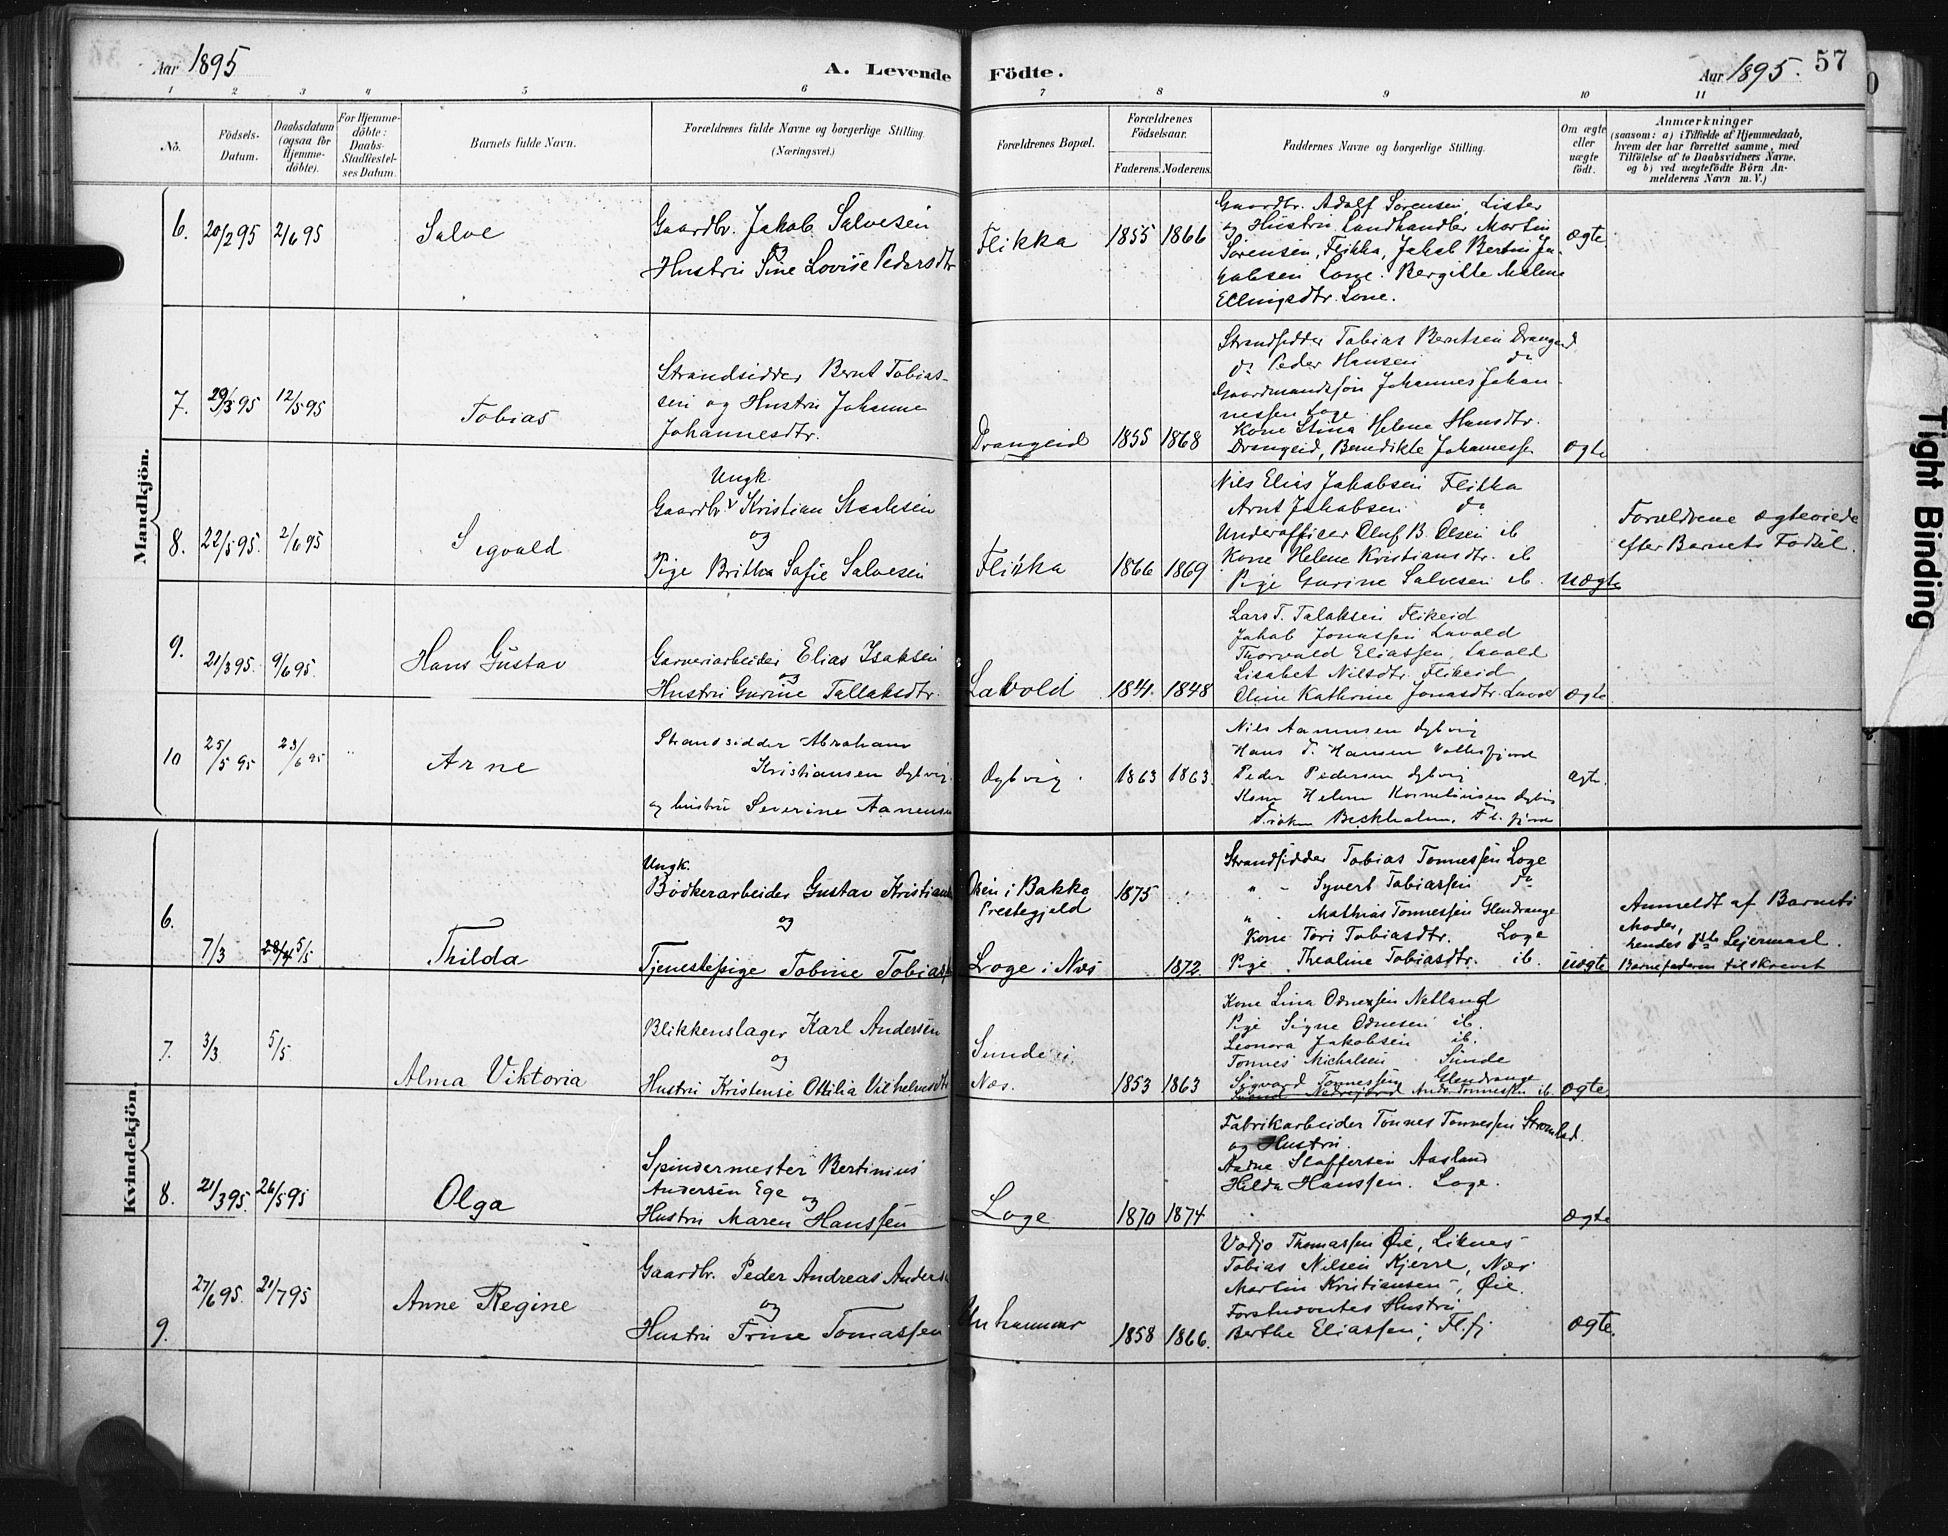 Aar 1895
A. Levende Födte.
Aar 1895.
57
1 2 3 4 5 6 7 8 9 10 11
No.
Födsels-
Datum.
Daabsdatum
(ogsaa for
Hjemme-
döbte).
For Hjemme-
döbte:
Daabs-
Stadfæstel-
ses Datum.
Barnets fulde Navn.
Forældrenes fulde Navne og borgerlige Stilling.
(Næringsvei.)
Forældrenes Bopæl.
Forældrenes
Födselsaar.
Faderens.
Moderens.
Faddernes Navne og borgerlige Stilling.
Om ægte
eller
uægte
födt.
Anmærkninger
(saasom: a) i Tilfælde af Hjemmedaab,
hvem der har forrettet samme, med
Tilföielse af to Daabsvidners Navne,
og b) ved uægtefödte Börn An-
melderens Navn m. V.)
Mandkjön.
6.
20/2 95
2/6 95
Salve
Gaardbr. Jakob Salvesen
og
Hustru Sine Lovise Pedersdtr
Flikka
1855
1866
Gaardbr. Adolf Sörensen, Lister
og Hustru, Landhandler Martin
Sörensen, Flikka, Jakob Bertin Ja-
kobsen Lone. Bergitte Malene
Ellingsdtr. Lone.
ægte
7.
29/3 95
12/5 95
Tobias
Strandsidder Bernt Tobias-
sen og Hustru Johanne
Johannesdtr.
Drangeid
1855
1868
Strandsidder Tobias Berntsen Drangeid
do Peder Hansen do
Gaardmandssön Johannes Johan-
nessen Loge
Kone Stina Helene Hansdtr.
Drangeid, Bendikte Johannesse
ægte
8.
22/5 95.
2/6 95
Sigvald
Ungk.
Gaardbr. Kristian Isaksen
og
Pige Britha Sofie Salvesen
Flikka
1866
1869
Nils Elias Jakobsen Flikka
Arnt Jakobsen do
Underofficer Oluf B. Olsen ib
Kone Helene Kristiansdtr. ib
Pige Gurine Salvesen ib.
uægte
Forældrene ægteviede
efter Barnets Födsel.
9.
21/3 95.
9/6 95.
Hans Gustav
Garveriarbeider Elias Isaksen
og
Hustru Gurine Tallaksdtr.
Lavold
1841.
1848
Lars T. Talaksen Flikeid
Jakob Jonassen Lavold
Thorvald Eliassen, Lavold
Lisabet Nilsdtr. Flikeid
Oline Kathrine Jonasdtr. Lavol
ægte
10
25/5 95
23/6 95
"
Arne
Strandsidder Abraham
Kristiansen Dybvig
og hustru Severine Aanensen
Dybvig.
1863
1863.
Nils Aanensen Dybvig
Hans T. Hansen Vollesfjord
Peder Pedersen Dybvig
Kone Helene Korneliusen Dybvig
Fröken Beckholm, Fl. fjord
ægte.
Kvindekjön.
6.
7/3
28/4 5/5
Thilda
Ungk.
Bödkerarbeider Gustav Kristians
og
Tjenestepige Tobine Tobiass
Osen i Bakke
Prestegjeld
Loge i Næs
1875
1872
Strandsidder Tobias Tonnessen Loge
" - Syvert Tobiassen do
" - Mathias Tonnessen Glendrange
Kone Tori Tobiasdtr. Loge
Pige Thealine Tobiasdtr. ib.
uægte
Anmeldt af Barnets
Moder,
hendes 1ste Leiermaal.
Barnefaderen tilskrevet
7.
3/3
5/5
Alma Viktoria
Blikkenslager Karl Andersen
og
Hustru Kristense Ottilia Vilhelmsdtr
Sunde i
Næs.
1853
1863
Kone Lina Odnesen Netland
Pige Signe Odnesen ib.
Leonora Jakobsen ib.
Tonnes Michalsen Sunde
Sigvard Tonnessen Glendrange
Andr. Tonnessen ib.
ægte
8.
21/3 95.
26/5 95
Olga
Spindermester Bertinius
Andersen Ege
og
Hustru Maren Hanssen
Loge
1870
1874
Fabrikarbeider Tönnes Tonnessen
og Hustru.
Aadne Staffersen Aasland
Hilda Hanssen. Loge.
ægte
9.
27/6 95.
21/7 95
Anne Regine
Gaardbr. Peder Andreas Anders
og
Hustru Trine Tomassen
1858
1866.
Vadjo Thomassen Öie, Liknes
Tobias Nilsen Kjerre, Næs
Martin Kristiansen, Öie.
Hustru
Berthe Eliassen, Fl.fj
ægte.
Tight Binding